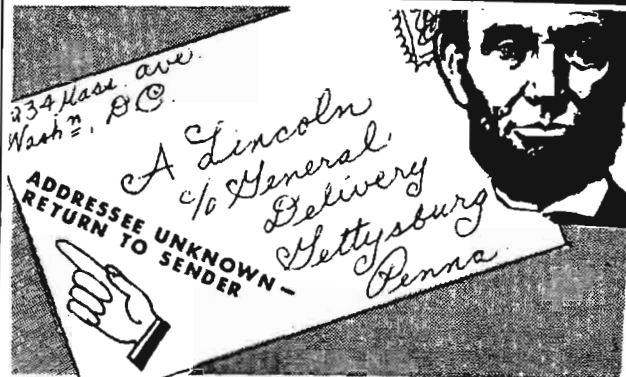 234 Mass ave.
Wash<u>n</u>. DC.
A Lincoln
c/o General
Delivery
Gettysburg
Penna
ADDRESSEE UNKNOWN—
RETURN TO SENDER